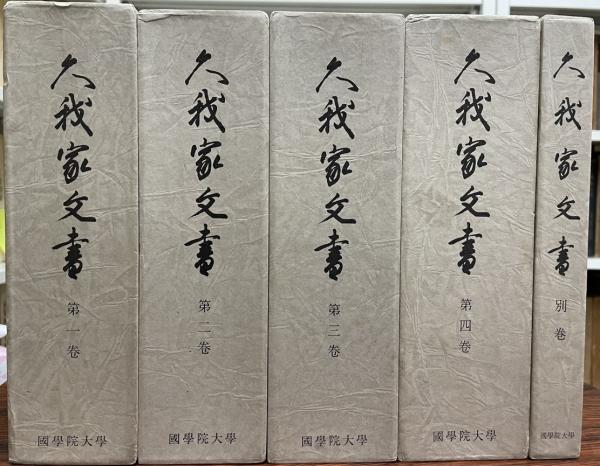 久我家文書
第一卷
國學院大學
久我家文書
第二卷
國學院大學
久我家文書
第三卷
國學院大學
久我家文書
第四卷
國學院大學
久我家文書
別卷
國學院大學